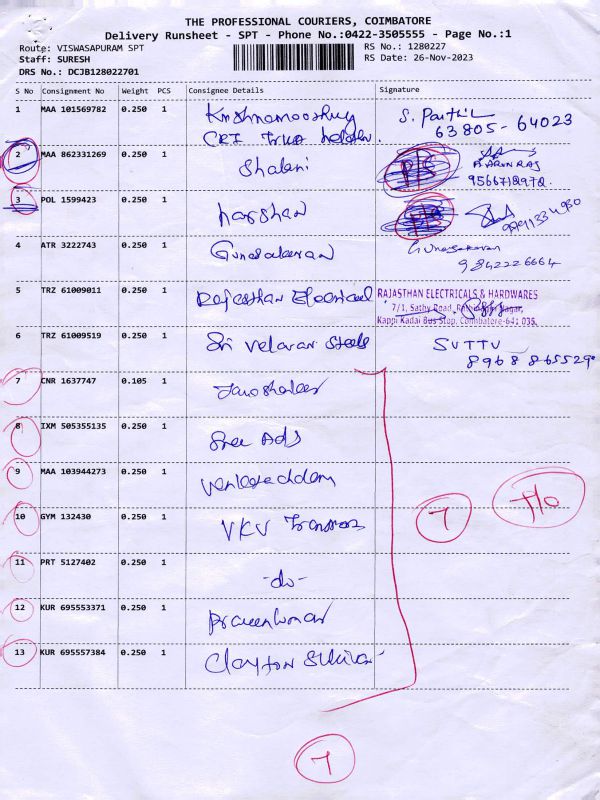 THE PROFESSIONAL COURIERS, COIMBATORE
Delivery Runsheet - SPT - Phone No.:0422-3505555 - Page No.:1
Route: VISWASAPURAM SPT
Staff: SURESH
DRS No.: DCJB128022701
RS No.: 1280227
RS Date: 26-Nov-2023
S No Consignment No Weight PCS Consignee Details Signature
1 MAA 101569782 0.250 1
CRI
63805-64023
2 MAA 862331269 0.250 1 Shalini
P. ARUN RAJ
3 POL 1599423 0.250 1 harshan
4 ATR 3222743 0.250 1 Gunasekaran Gunasekaran
9842226664
5 TRZ 61009011 0.250 1 Rajasthan Electrical RAJASTHAN ELECTRICALS & HARDWARES
7/1, Sathy Road, Nagar,
Kappi Kadai Bus Stop, Coimbatore-641 035.
6 TRZ 61009519 0.250 1 Sri Velavan Steels SUTTU
7 CNR 1637747 0.105 1
8 IXM 505355135 0.250 1 Sree Ads
9 MAA 103944273 0.250 1
7
10 GYM 132430 0.250 1 VKV
11 PRT 5127402 0.250 1 -do-
12 KUR 695553371 0.250 1 Praveenkumar
13 KUR 695557384 0.250 1 Clayton
7